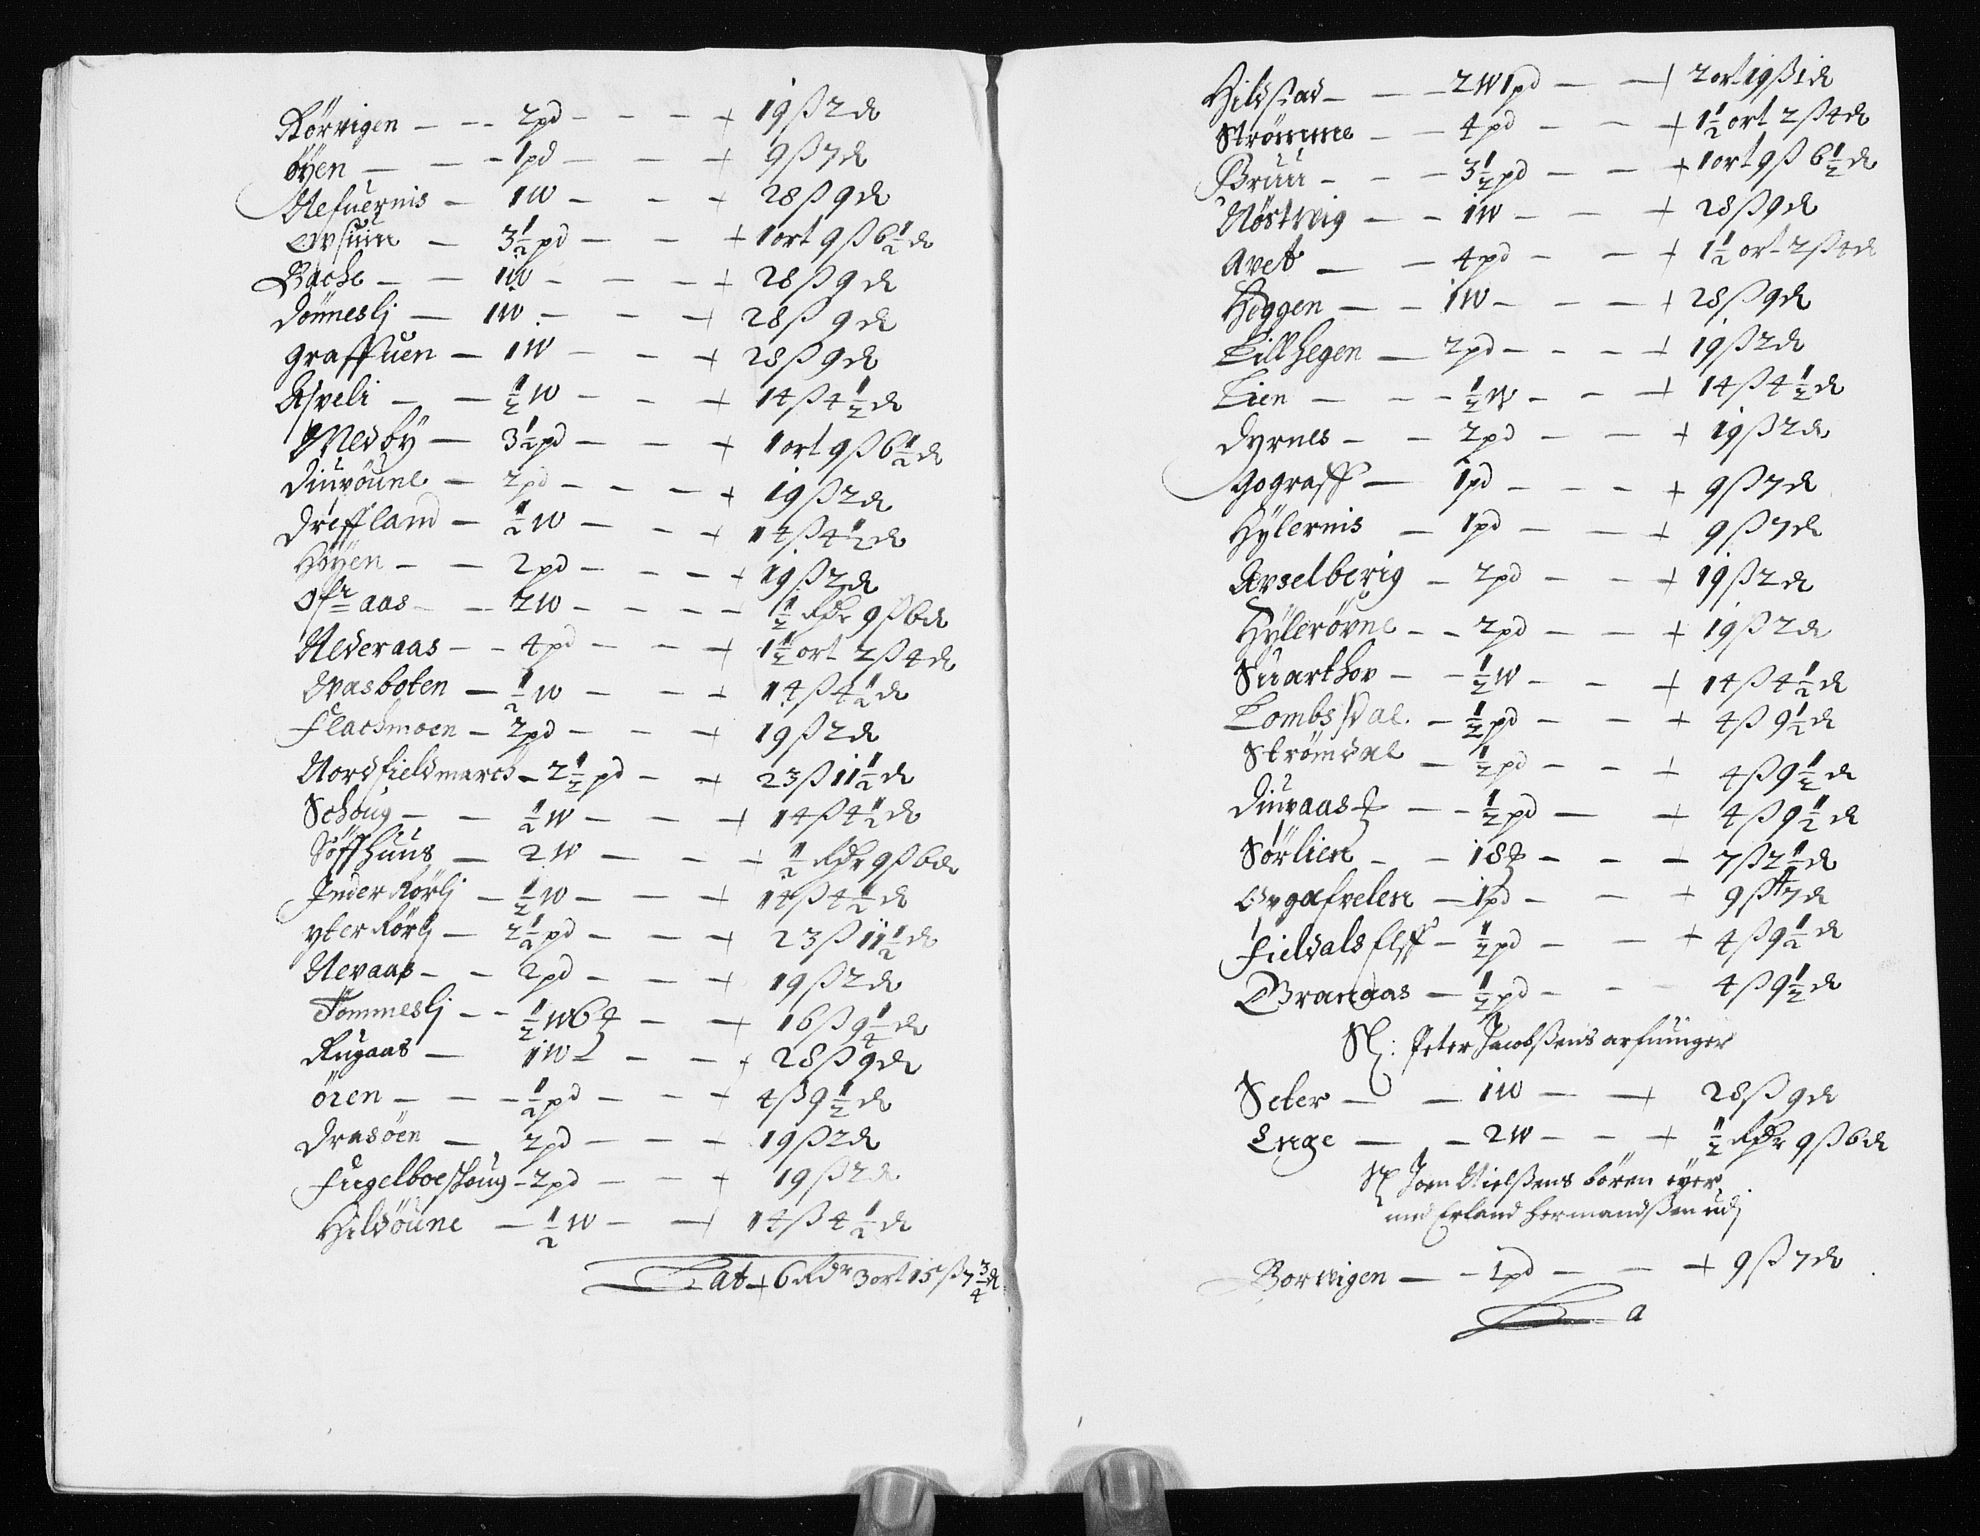 Rörvigen - - - 2pd - - - + 19ß 2₰
öÿen - - - 1pd - - - + 9ß 7₰
Nefuernis - 1W - - - + 28ß 9₰
- 3½pd - - + 1ort 9ß 6½₰
Bache - - 1W - - - + 28ß 9₰
Dönneslj - 1W - - - + 28ß 9₰
Graffuen - 1W - - - + 28ß 9₰
Aspeli - - ½W - - - + 14ß 4½₰
Medbÿ - 3½pd - - - + 1ort 9ß 6½₰
- 2pd - - - + 19ß 2₰
Dreffland - ½W - - - + 14ß 4½₰
Höÿen - - 2pd - - - + 19ß 2₰
Ofr aas - - 2W - - - - ½ Rdr 9ß 6₰
Nederaas - - 4pd - - - + 1½ort 2ß 4₰
Drasboten - ½W - - - + 14ß 4½₰
Flachmoen - 2pd - - - + 19ß 2₰
Nordfieldmarch - 2½pd - + 23ß 11½₰
Schoug - - ½W - - - + 14ß 4½₰
Söffhuus - 2W - - - + ½ Rdr 9ß 6₰
Inder Rörlj - ½W - - - + 14ß 4½₰
Yter Rörlj - 2½pd - - - + 23ß 11½₰
Nevaas - - 2pd - - - + 19ß 2₰
Tömmeslj - - ½W 6 - - + 16ß 9¼₰
Rugaas - 1W - - - + 28ß 9₰
ören - - - ½pd - - - + 4ß 9½₰
Drasöen - 2pd - - - + 19ß 2₰
Fugelboeschoug - 2pd - - + 19ß 2₰
Hildöune - ½W - - + 14ß 4½₰
Lat + 6 Rdr 3ort 15ß 7¾₰
Hildstad - - - 2W 1pd - - + 2ort 19ß 1₰
Strömme - - 4pd - - + 1½ort 2ß 4₰
Bruu - - - 3½pd - - + 1ort 9ß 6½₰
Nöstwig - - 1W - - + 28ß 9₰
- - 4pd - - + 1½ort 2ß 4₰
Heggen - - 1W - - - + 28ß 9₰
Lillhegen - 2pd - - - + 19ß 2₰
Lien - - - ½W - - - + 14ß 4½₰
Dyrnes - - 2pd - - + 19ß 2₰
Gograff - 1pd - - - + 9ß 7₰
Hÿlernis - 1pd - - - + 9ß 7₰
Avselberig - 2pd - - + 19ß 2₰
Hÿlerövne - - 2pd - - + 19ß 2₰
Suarthov - - ½W - - + 14ß 4½₰
Lombsdal - ½pd - - + 4ß 9½₰
Strömdal - ½pd - - + 4ß 9½₰
- - ½pd - - + 4ß 9½₰
Sörlien - - 18 - - - 7ß 2½₰
- 1pd - - + 9ß 7₰
Fieldals Elff - ½pd - - + 4ß 9½₰
Branaas - ½pd - - - 4ß 9½₰
Sl: Peter Jacobßens arfuinger
Seter - - 1W - - + 28ß 9₰
Enge - - 2W - - + ½ Rdr 9ß 6₰
Sl Joen Nielßens bören eÿer
med Erland Hermandßen udj
Borwigen - - 1pd - - + 9ß 7₰
L a